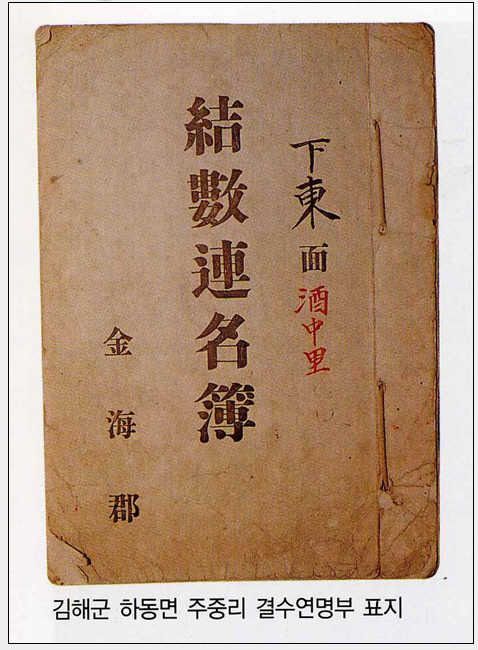 下東面 酒中里
結數連名簿
金海郡
김해군 하동면 주중리 결수연명부 표지